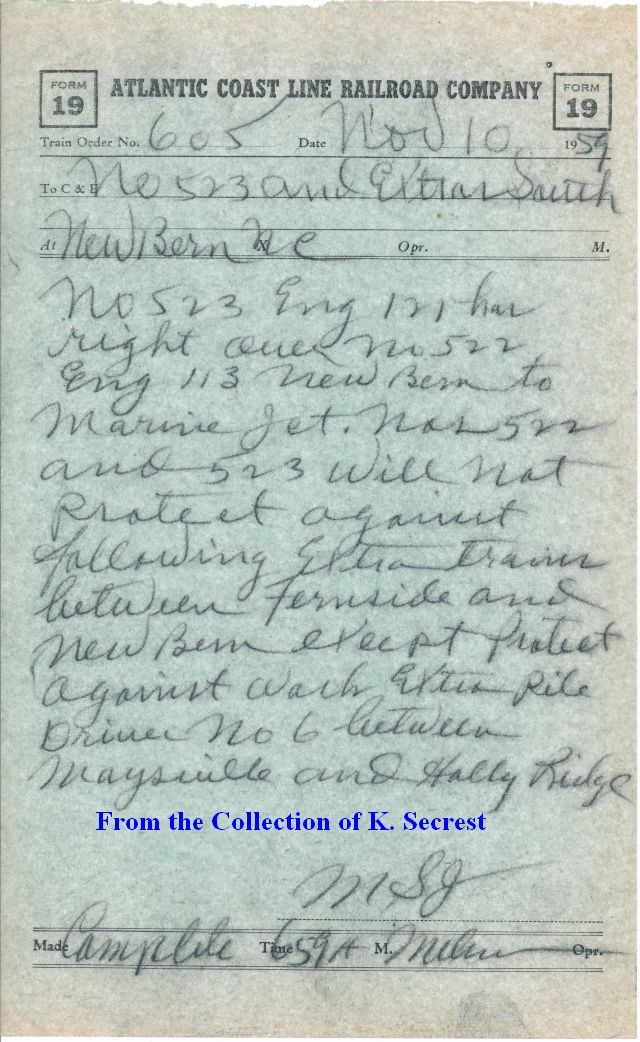 FORM 19 ATLANTIC COAST LINE RAILROAD COMPANY FORM 19
Train Order No. 605 Date Nov 10, 1959
To C & E No 523 and Extras South
At New Bern X N C Opr. M.
No 523 Eng 121 has
right over No 522
Eng 113 New Bern to
Marine Jct. Nos 522
and 523 will not
Protect against
following Extra trains
between Fernside and
New Bern except Protect
against Work Extra Pile
Driver No 6 between
Maysville and Holly Ridge
From the Collection of K. Secrest
M S J
Made Complete Time 659 A M. Opr.